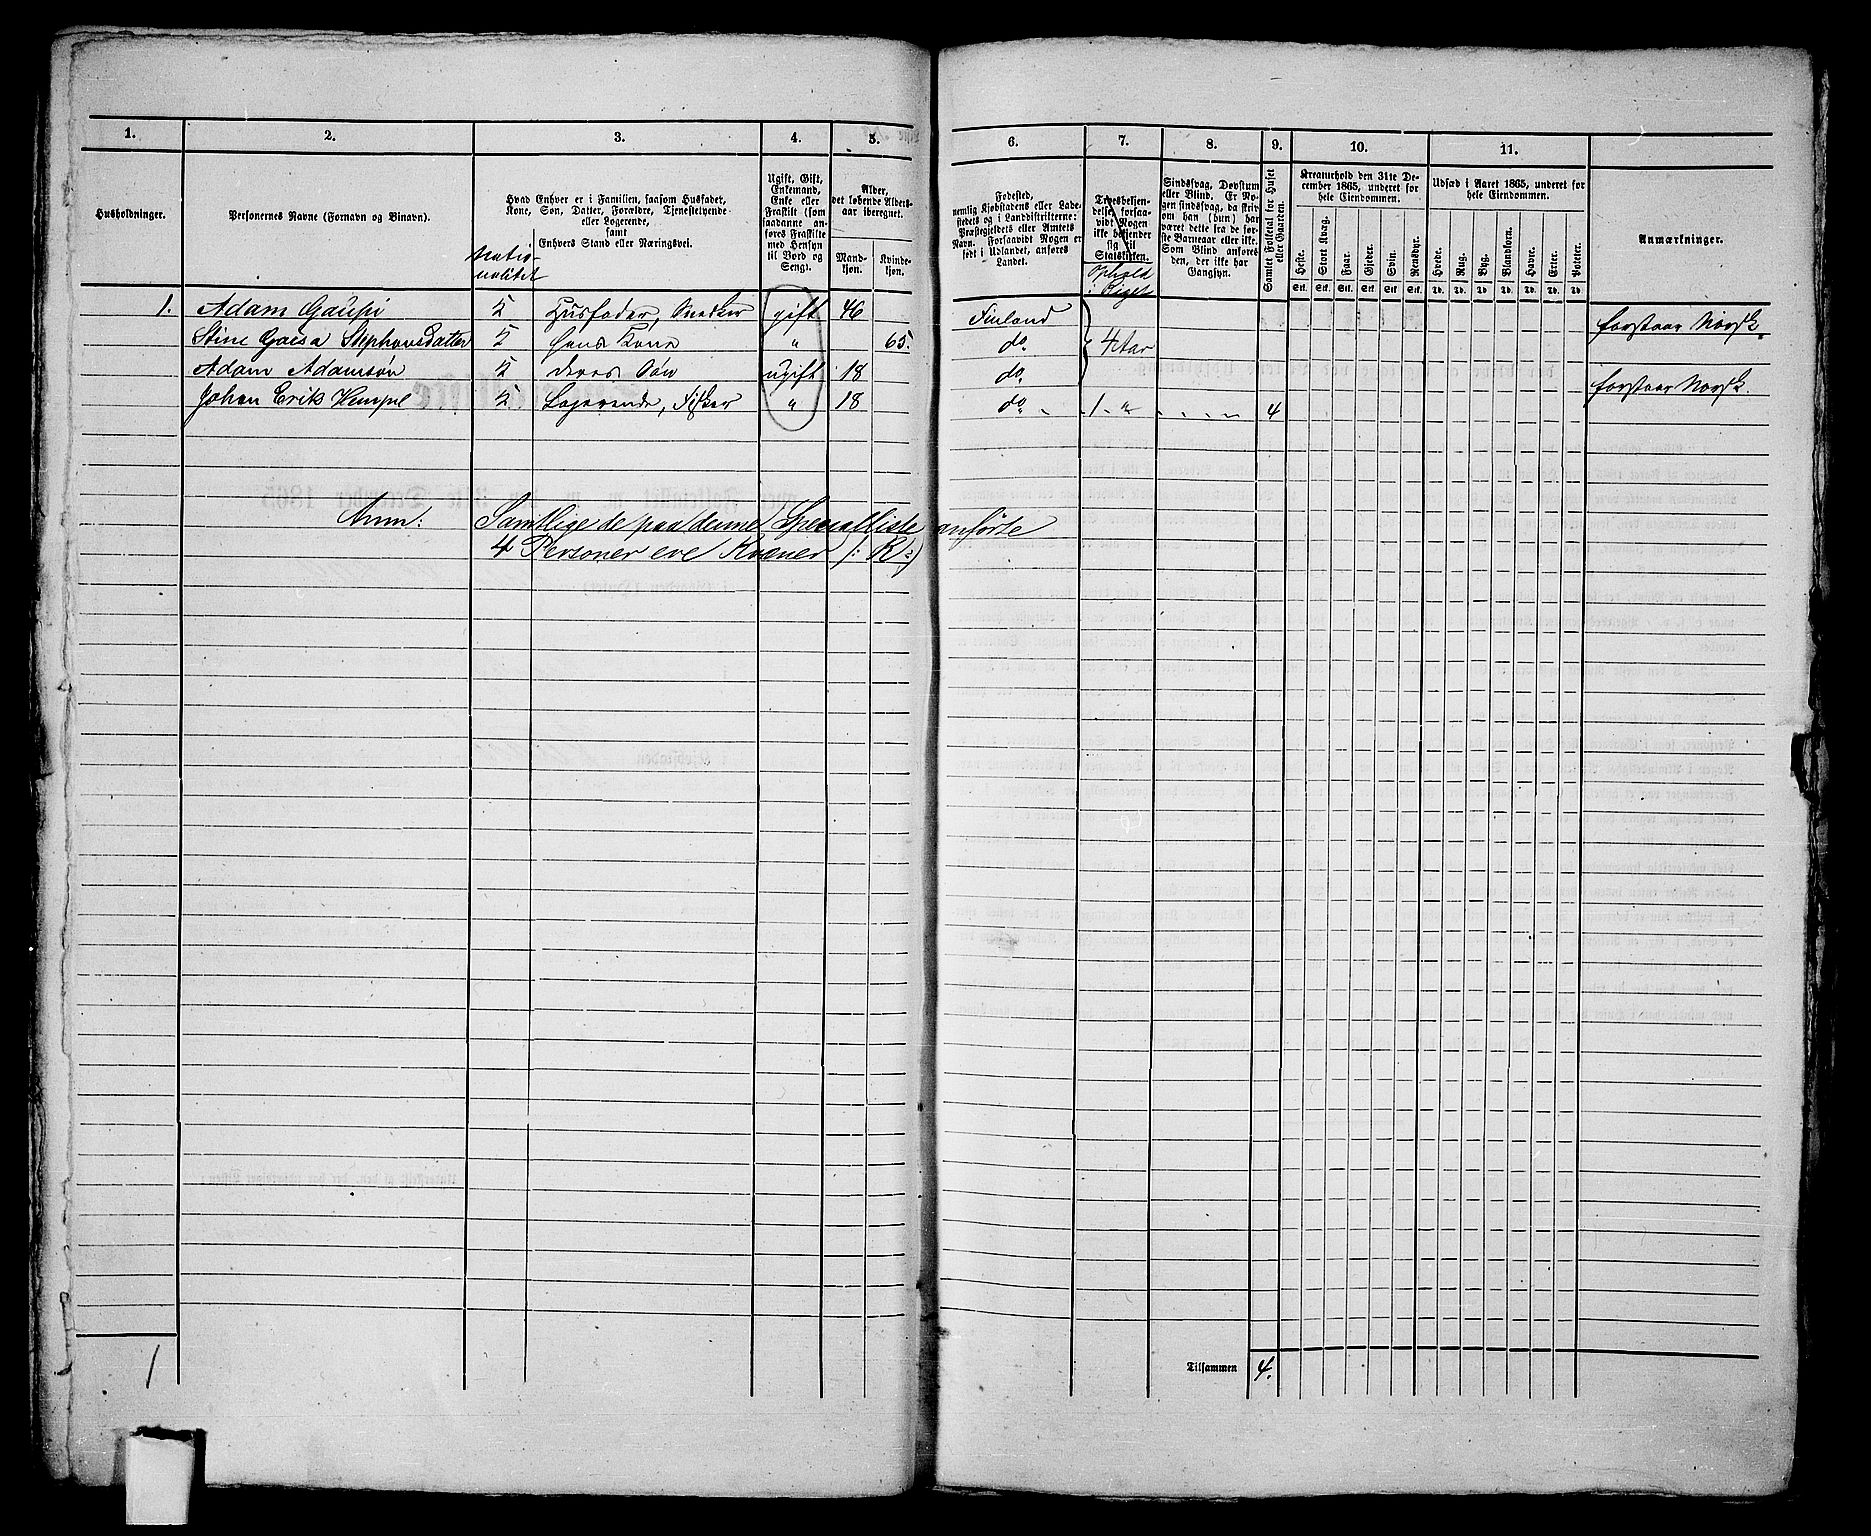 1. 2. 3. 4. 5. 6. 7. 8. 9. 10. 11.
Husholdninger.
Personernes Navne (Fornavn og Binavn).
Hvad Enhver er i Familien, saasom Husfader,
Kone, Søn, Datter, Forældre, Tjenestetyende
eller Logerende,
samt
Enhvers Stand eller Næringsvei.
Natio-
nalitet
Ugift, Gift,
Enkemand,
Enke eller
Fraskilt (som
saadanne an-
føres Fraskilte
med Hensyn
til Bord og
Seng).
Alder,
det løbende Alders-
aar iberegnet.
Mand-
kjøn.
Kvinde-
kjøn.
Fødested,
nemlig Kjøbstadens eller Lade-
stedets og i Landdistrikterne:
Præstegjeldets eller Amtets
Navn. Forsaavidt Nogen er
født i Udlandet, anføres
Landet.
Troesbekjen-
delse forsaa-
vidt Nogen
ikke bekjender
sig til
Statskirken.
Ophold
i Riget
Sindssvag, Døvstum
eller Blind. Er No-
gen sindssvag, da skriv
om han (hun) har
været dette fra de før-
ste Barneaar eller ikke.
Som Blind anføres
den, der ikke har
Gangsyn.
Samlet Folketal for Huset
eller Gaarden.
Kreaturhold den 31te De-
cember 1865, underet for
hele Eiendommen.
Heste. Stort Kvæg. Faar. Gjeder. Svin. Rensdyr.
Stk. Stk. Stk. Stk. Stk. Stk.
Udsæd i Aaret 1865, underet for
hele Eiendommen.
Hvede. Rug. Byg. Blandkorn. Havre. Erter. Poteter.
Td. Td. Td. Td. Td. Td. Td.
Anmærkninger.
1. Adam Gaupi 5 Husfader, Snedker gift 46 Finland forstaar Norsk.
Stine Gaisa Stephansdatter 5 hans Kone " 65. do. 4 Aar
Adam Adamsøn 5 deres Søn ugift 18 do. forstaar Norsk.
Johan Erik Kempel 5 Logerende, Fisker " 18 do. 1 " 4
Anm: Samtlige de paa denne Specialliste anførte
4 Personer ere Kvæner (: K :)
1
Tilsammen 4.